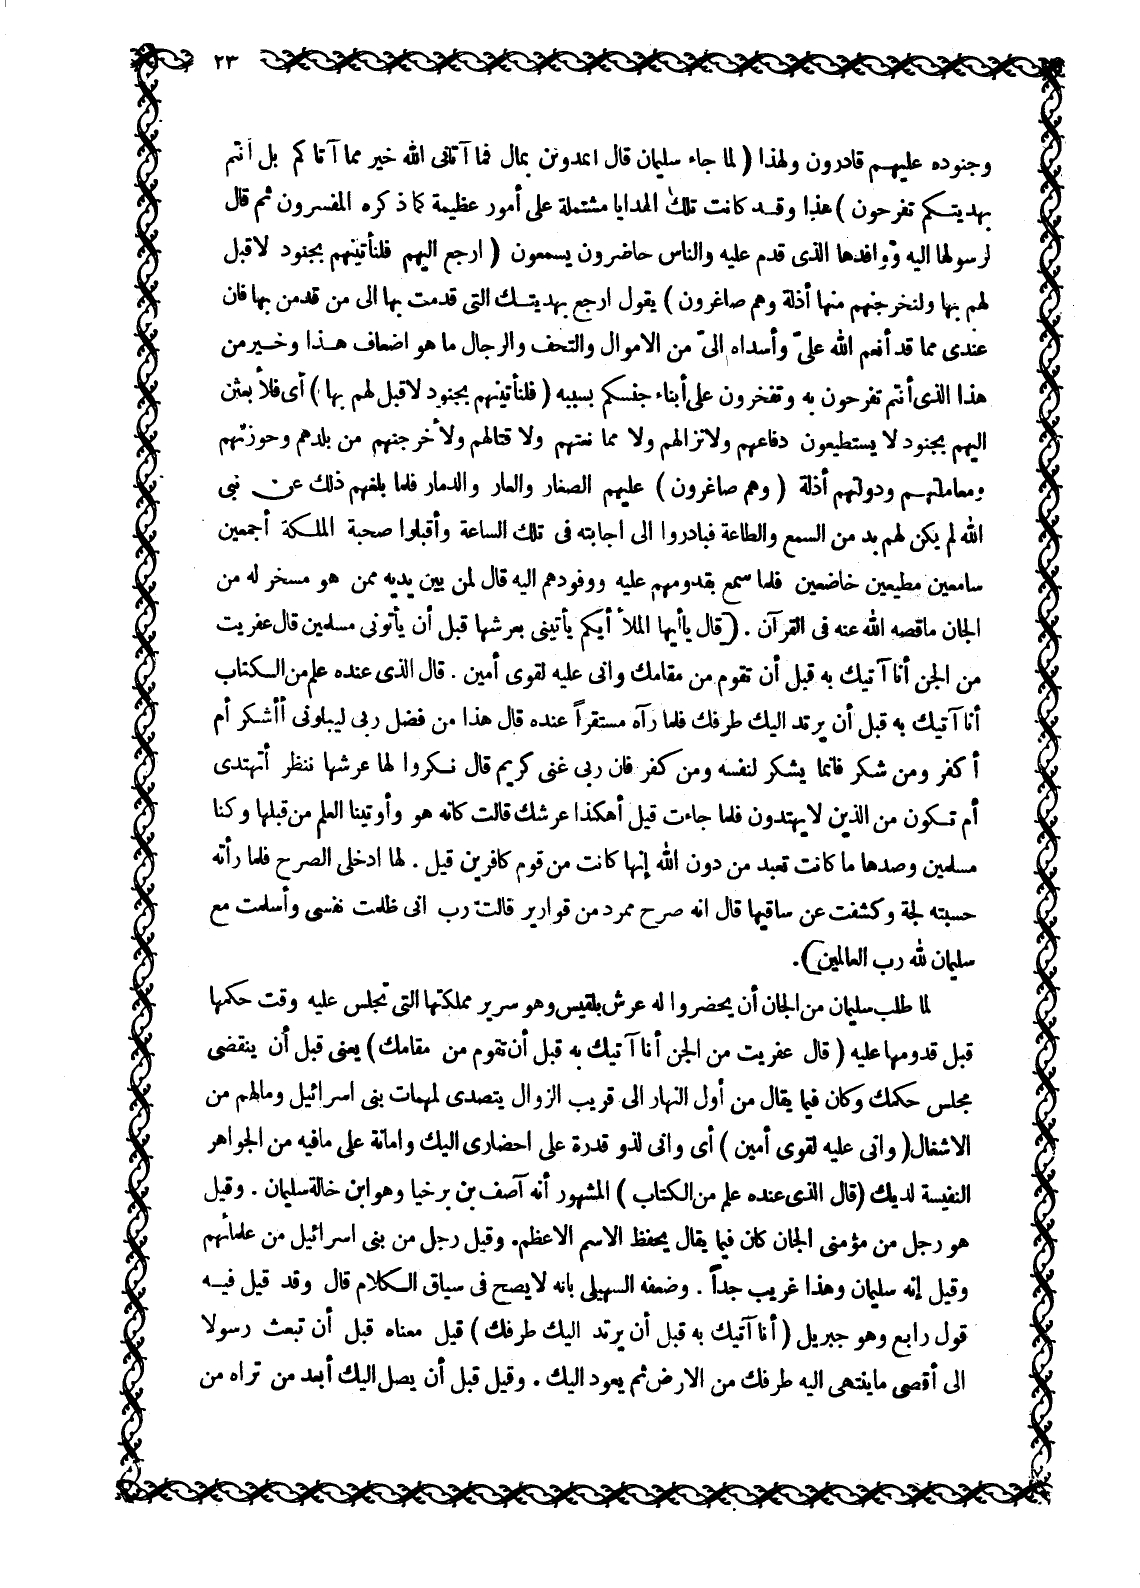 ٢٣
وجنوده عليهم قادرون ولهذا ( لما جاء سليمان قال اتمدونن بمال فما آتانى الله خير مما آتاكم بل أنتم
بهديتكم تفرحون ) هذا وقد كانت تلك الهدايا مشتملة على أمور عظيمة كما ذكره المفسرون ثم قال
لرسولها اليه ووافدها الذى قدم عليه والناس حاضرون يسمعون ( ارجع اليهم فلنأتينهم بجنود لاقبل
لهم بها ولنخرجنهم منها أذلة وهم صاغرون ) يقول ارجع بهديتك التى قدمت بها الى من قدمن بها فان
عندى مما قد أنعم الله علىّ وأسداه الىّ من الاموال والتحف والرجال ما هو اضعاف هذا وخير من
هذا الذى أنتم تفرحون به وتفخرون على أبناء جنسكم بسببه ( فلنأتينهم بجنود لاقبل لهم بها ) أى فلأبعثن
اليهم بجنود لا يستطيعون دفاعهم ولا نزالهم ولا مما نعتهم ولا قتالهم ولأخرجنهم من بلدهم وحوزتهم
ومعاملتهم ودولتهم أذلة ( وهم صاغرون ) عليهم الصغار والعار والدمار فلما بلغهم ذلك عن نبى
الله لم يكن لهم بد من السمع والطاعة فبادروا الى اجابته فى تلك الساعة وأقبلوا صحبة الملكة أجمعين
سامعين مطيعين خاضعين فلما سمع بقدومهم عليه ووفودهم اليه قال لمن بين يديه ممن هو مسخر له من
الجان ماقصه الله عنه فى القرآن . ( قال يأأيها الملأ أيكم يأتينى بعرشها قبل أن يأتونى مسلمين قال عفريت
من الجن أنا آتيك به قبل أن تقوم من مقامك وانى عليه لقوى أمين . قال الذى عنده علم من الكتاب
أنا آتيك به قبل أن يرتد اليك طرفك فلما رآه مستقراً عنده قال هذا من فضل ربى ليبلونى أأشكر أم
أكفر ومن شكر فانما يشكر لنفسه ومن كفر فان ربى غنى كريم قال نكروا لها عرشها ننظر أتهتدى
أم تكون من الذين لايهتدون فلما جاءت قيل أهكذا عرشك قالت كانه هو وأوتينا العلم من قبلها وكنا
مسلمين وصدها ما كانت تعبد من دون الله إنها كانت من قوم كافرين قيل . لها ادخلى الصرح فلما رأته
حسبته لجة وكشفت عن ساقيها قال انه صرح ممرد من قوارير قالت رب انى ظلمت نفسى وأسلمت مع
سليمان لله رب العالمين ) .
لما طلب سليمان من الجان أن يحضروا له عرش بلقيس وهو سرير مملكتها التى تجلس عليه وقت حكمها
قبل قدومها عليه ( قال عفريت من الجن أنا آتيك به قبل أن تقوم من مقامك ) يعنى قبل أن ينقضى
مجلس حكمك وكان فيما يقال من أول النهار الى قريب الزوال يتصدى لمهمات بنى اسرائيل ومالهم من
الاشغال ( وانى عليه لقوى أمين ) أى وانى لذو قدرة على احضارى اليك وامانة على مافيه من الجواهر
النفيسة لديك ( قال الذى عنده علم من الكتاب ) المشهور أنه آصف بن برخيا وهو ابن خالة سليمان . وقيل
هو رجل من مؤمنى الجان كان فيما يقال يحفظ الاسم الاعظم. وقيل رجل من بنى اسرائيل من علمائهم
وقيل إنه سليمان وهذا غريب جداً . وضعفه السهيلى بانه لا يصح فى سياق الكلام قال وقد قيل فيه
قول رابع وهو جبريل ( أنا آتيك به قبل أن يرتد اليك طرفك ) قيل معناه قبل أن تبعث رسولا
الى أقصى ماينتهى اليه طرفك من الارض ثم يعود اليك . وقيل قبل أن يصل اليك أبعد من تراه من